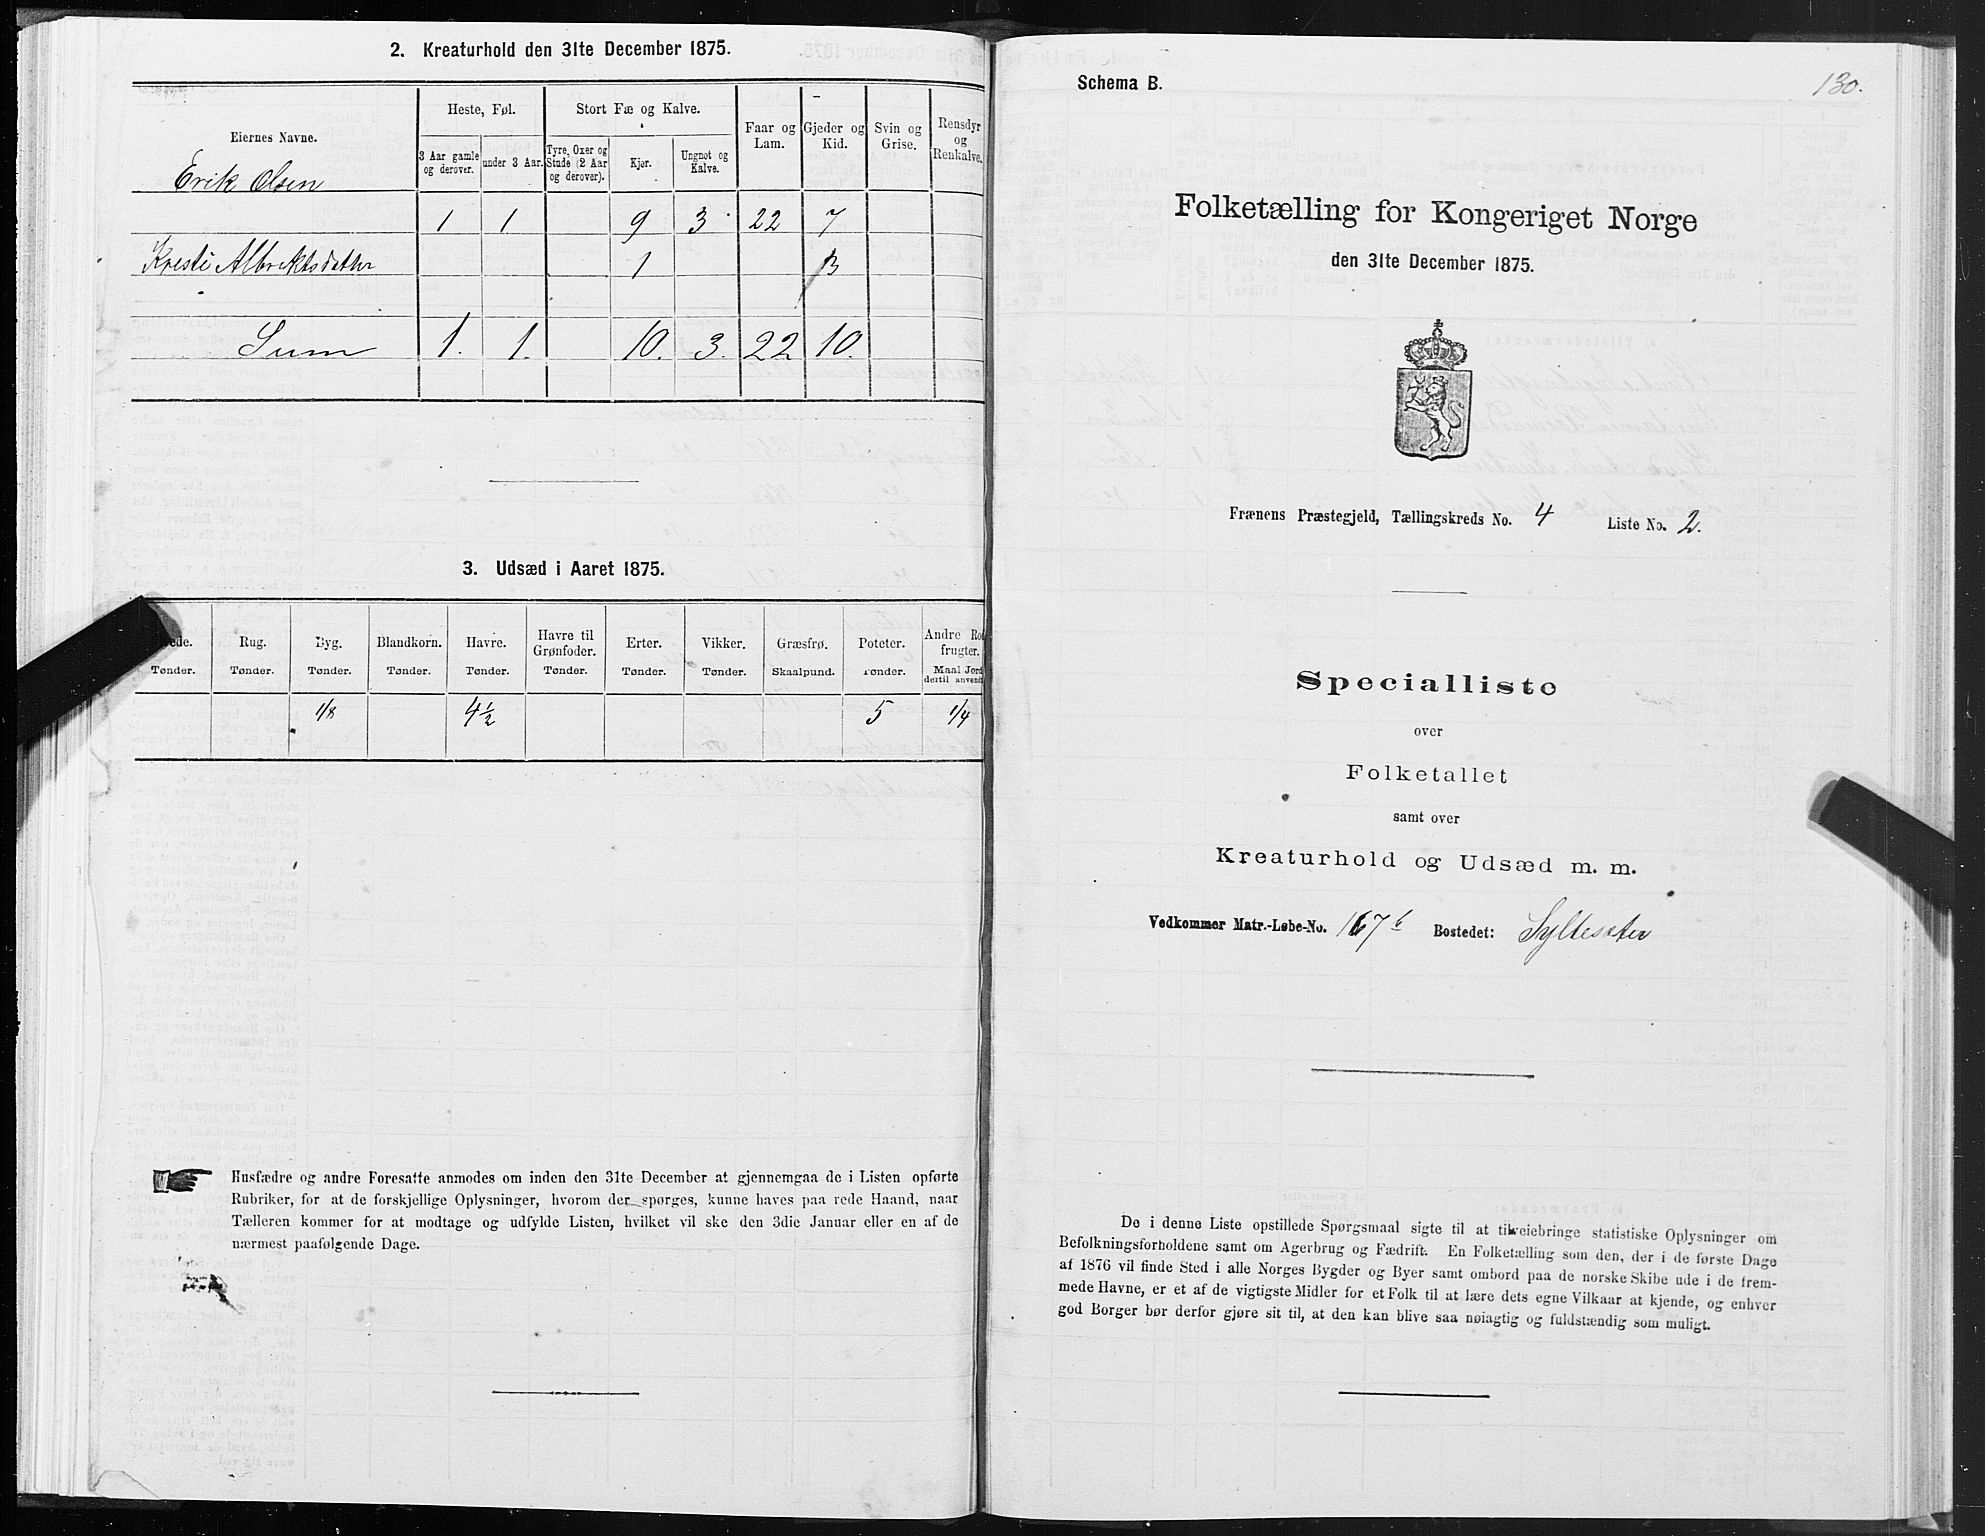 2. Kreaturhold den 31te December 1875.
Eiernes Navne.
Heste, Føl.
Stort Fæ og Kalve.
Faar og Lam.
Gjeder og Kid.
Svin og Grise.
Rensdyr og Renkalve.
3 Aar gamle og derover.
under 3 Aar.
Tyre, Oxer og Stude (2 Aar og derover).
Kjør.
Ungnøt og Kalve.
Erik Olsen
1 1 9 3 22 7
Kresti Albrektsdatter 1 3
Sum 1. 1. 10. 3. 22 10.
3. Udsæd i Aaret 1875.
Rug. Byg. Blandkorn. Havre. Havre til Grønfoder. Erter. Vikker. Græsfrø. Poteter. Andre Rodfrugter.
Tønder. Tønder. Tønder. Tønder. Tønder. Tønder. Tønder. Tønder. Skaalpund. Tønder. Maal Jord dertil anvendt
1/8 4 1/2 5 1/4
Husfædre og andre Foresatte anmodes om inden den 31te December at gjennemgaa de i Listen opførte
Rubriker, for at de forskjellige Oplysninger, hvorom der spørges, kunne haves paa rede Haand, naar
Tælleren kommer for at modtage og udfylde Listen, hvilket vil ske den 3die Januar eller en af de
nærmest paafølgende Dage.
Schema B.
130.
Folketælling for Kongeriget Norge
den 31te December 1875.
Frænens Præstegjeld, Tællingskreds No. 4 Liste No. 2.
Specialliste
over
Folketallet
samt over
Kreaturhold og Udsæd m. m.
Vedkommer Matr.-Løbe-No. 167b Bostedet: Sylteseter
De i denne Liste opstillede Spørgsmaal sigte til at tilveiebringe statistiske Oplysninger om
Befolkningsforholdene samt om Agerbrug og Fædrift. En Folketælling som den, der i de første Dage
af 1876 vil finde Sted i alle Norges Bygder og Byer samt ombord paa de norske Skibe ude i de frem-
mede Havne, er et af de vigtigste Midler for et Folk til at lære dets egne Vilkaar at kjende, og enhver
god Borger bør derfor gjøre sit til, at den kan blive saa nøiagtig og fuldstændig som muligt.